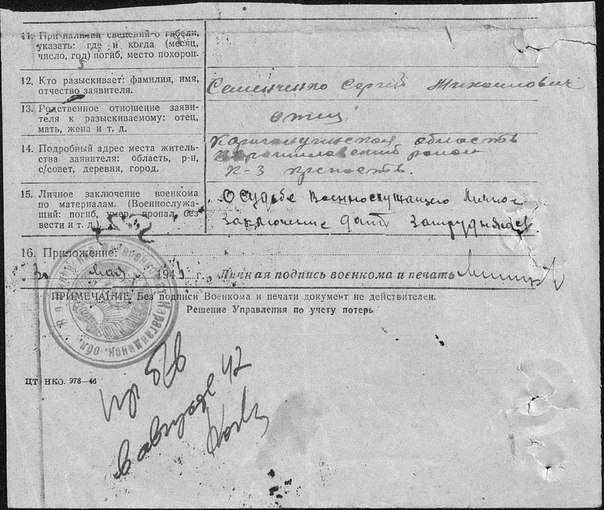 11. При наличии сведений о гибели,
указать: где и когда (месяц,
число, год) погиб, место похорон.
12. Кто разыскивает: фамилия, имя,
отчество заявителя.
Семенченко Сергей Михайлович
13. Родственное отношение заяви-
теля к разыскиваемому: отец,
мать, жена и т. д.
отец
14. Подробный адрес места житель-
ства заявителя: область, р-н,
с/совет, деревня, город.
Карагандинская область
Ворошиловский район
15. Личное заключение военкома
по материалам. (Военнослужа-
щий: погиб, умер, пропал без
вести и т. д.)
О судьбе военнослужащего личное
заключение дать затрудняюсь
16. Приложение:
мая 194 г. Личная подпись военкома и печать
ПРИМЕЧАНИЕ. Без подписи Военкома и печати документ не действителен.
Решение Управления по учету потерь
Карагандинск. обл.
ЦТ НКО. 978—46
пр
в августе 42